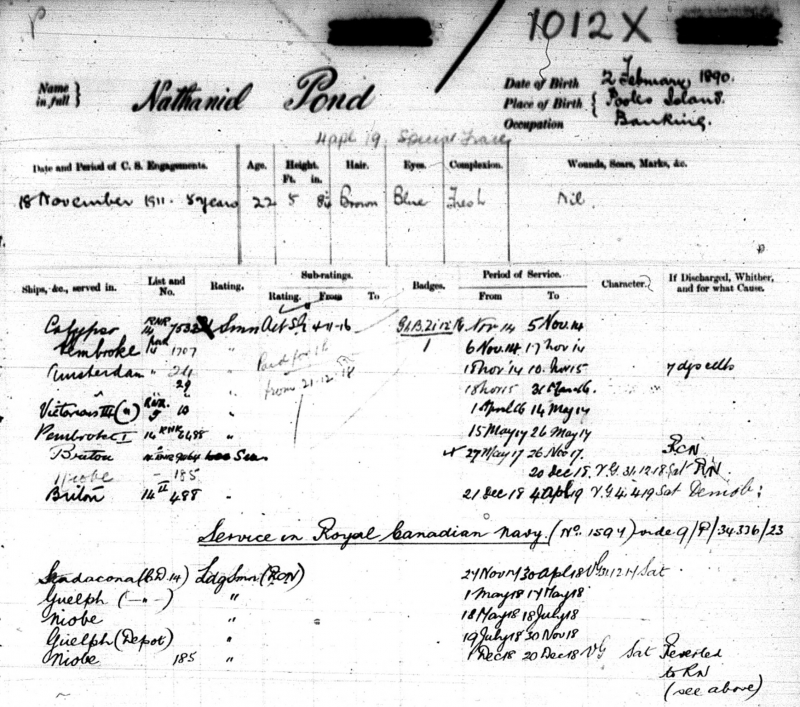 1012 X
Name in full } Nathaniel Pond
Date of Birth 2 February, 1890.
Place of Birth { Pools Island.
Occupation Banking.
4 apl 19. Special
Date and Period of C. S. Engagements. Age. Height. Ft. in. Hair. Eyes. Complexion. Wounds, Scars, Marks, &c.
18 November 1911. 5 years 22 5 Brown Blue Fresh Nil.
Ships, &c., served in. List and No. Rating. Sub-ratings. Rating. From To Badges. Period of Service. From To Character. If Discharged, Whither, and for what Cause.
Calypso RNR 14 7532 Smn 4-11-16 G.B. 21 12 16 Nov 14 5 Nov. 14
Pembroke 14 1707 " 1 6 Nov. 14 17 Nov 14
Amsterdam " 24 " 18 Nov '14 10. Nov 15 7 dys cells
" 29 18 Nov 15 31
Victorious III (") RNR 5 10 " 1 April 16 14 May 17
Paid for 1 B from 21.12.18
Pembroke I 14 RNR 6485 " 15 May 17 26 May 17
Briton 27 May 17 26 Nov 17. RCN
Niobe - 185 20 Dec 18. V.G. 31.12.18 Sat RN.
Briton 14 II 488 " 21 Dec 18 4 Apl 19 V.G. 4.4.19 Sat Demob:
Service in Royal Canadian Navy. (No. 1597) vide 9/P/34336/23
Stadacona (C.D. 14) Ldg Smn (RCN) 27 Nov 17 30 Apl 18 VG 31.12.17 Sat
Guelph (-"-) " 1 May 18 17 May 18
Niobe " 18 May 18 18 July 18
Guelph (Depot) " 19 July 18 30 Nov 18
Niobe 185 " 1 Dec 18 20 Dec 18 VG Sat Reverted
to RN
(see above)